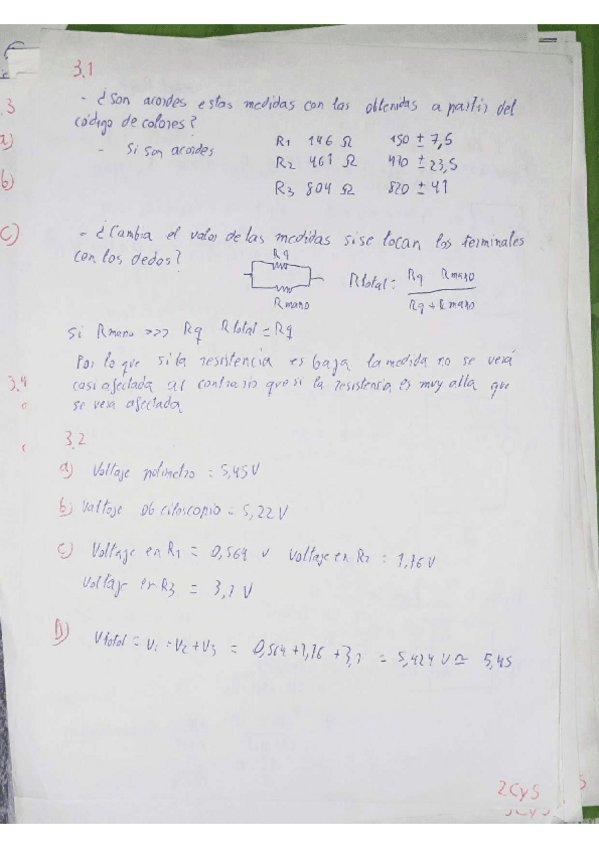 3.1
- ¿Son acordes estas medidas con las obtenidas a partir del
código de colores?
- Si son acordes
R1 146 Ω 150 ± 7,5
R2 461 Ω 470 ± 23,5
R3 804 Ω 820 ± 41
3
a)
b)
c)
- ¿Cambia el valor de las medidas si se tocan los terminales
con los dedos?
Rq
Rmano
Rtotal = Rq Rmano
Rq + Rmano
Si Rmano >>> Rq Rtotal = Rq
Por lo que si la resistencia es baja la medida no se verá
casi afectada al contrario que si la resistencia es muy alta que
se vera afectada
3.4
3.2
a) Voltaje polimetro = 5,45 V
b) Voltaje Osciloscopio = 5,22 V
c) Voltaje en R1 = 0,564 V Voltaje en R2 = 1,76 V
Voltaje en R3 = 3,1 V
D) Vtotal = V1 + V2 + V3 = 0,564 + 1,76 + 3,1 = 5,424 V ≃ 5,45
2CyS